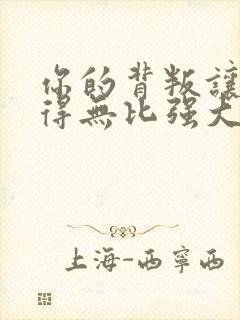 你的背叛讓
得無比强大
上海-西寧西